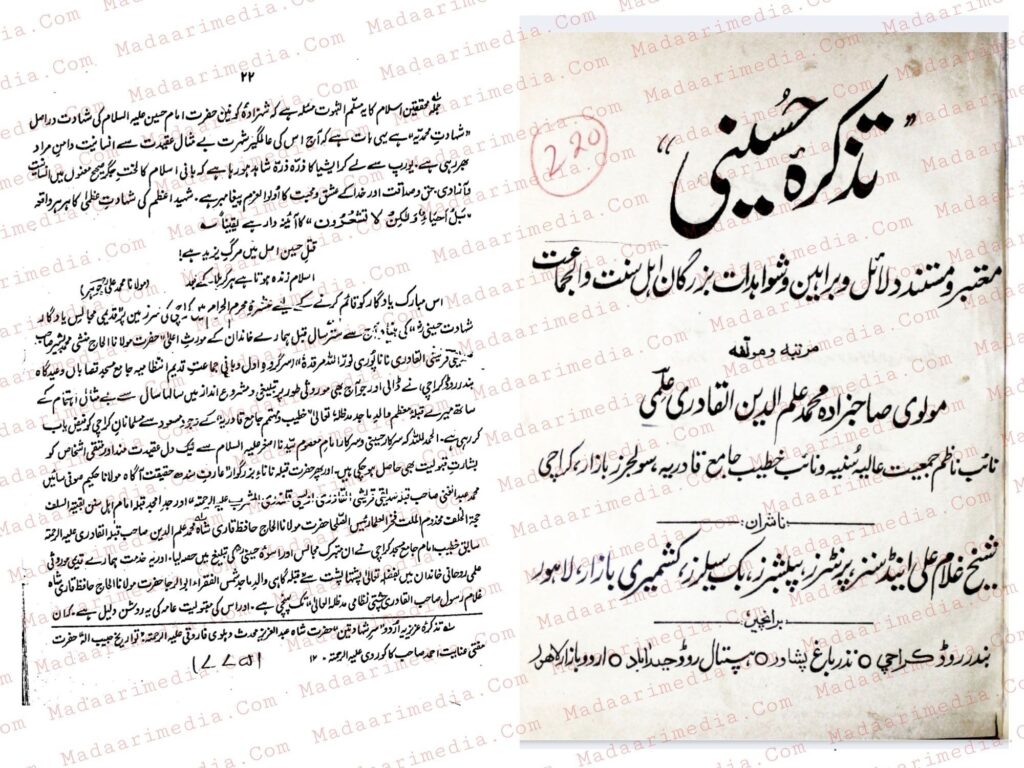 ۲۲
جملہ محققین اسلام کا یہ مسلّم الثبوت مسئلہ ہے کہ شہزادۂ کونین حضرت امام حسین علیہ السلام کی شہادت دراصل
"شہادتِ محمدیہ" ہے یہی بات ہے کہ آج اس کی عالمگیر شہرت بے مثال عقیدت سے انسانیت دامنِ مراد
بھر رہی ہے۔ یورپ سے لے کر ایشیا کا ذرّہ ذرّہ شاہد ہو رہا ہے کہ بانی اسلام کا لختِ جگر صحیح معنوں میں انسانیت
و آزادی، حق و صداقت اور خدا کے عشق و محبت کا اولوالعزم پیغامبر ہے۔ شہید اعظم کی شہادتِ عظمیٰ کا ہر ہر واقعہ
"بَلْ اَحْیَاءٌ وَّلٰکِنْ لَّا تَشْعُرُوْنَ" کا آئینہ دار ہے یقیناً
قتلِ حسین اصل میں مرگِ یزید ہے!
اسلام زندہ ہوتا ہے ہر کربلا کے بعد (مولانا محمد علی جوہر)
اس مبارک یادگار کو قائم کرنے کے لیے عشرہ محرم الحرام میں کراچی کی سرزمین پر قدیمی مجالس یادگار
شہادت حسینی کی بنیاد آج سے ستر سال قبل ہمارے خاندان کے مورثِ اعلیٰ "حضرت مولانا الحاج منشی محمد بشیر صاحب
قریشی القادری نانا پوری نوراللہ مرقدہٗ" سرگروہ اول و بانی جماعت قدیم انتظامیہ جامع مسجد قصاباں و عیدگاہ
بندر روڈ کراچی نے ڈالی اور جو آج بھی موروثی طور پر تبلیغی و مشروع انداز میں سالہا سال سے بے مثالی اہتمام کے
ساتھ میرے قبلہ معظم والد ماجد مدظلہٗ تعالیٰ "خطیب و مہتمم جامع قادریہ" کے وجود مسعود سے مسلمانان کراچی کو فیض یاب
کر رہی ہے۔ الحمدللہ کہ سرکار حسینی و سرکار امام معصوم سیدنا اصغر علیہ السلام سے نیک دل عقیدت مند اور متقی اشخاص کو
بشارتِ قبولیت بھی حاصل ہو چکی ہیں، اور پھر حضرت قبلہ ناناءِ بزرگوار عارف سندھ حقیقت آگاہ مولانا حکیم صوفی سائیں
محمد عبدالغنی صاحب قبلہ صدیقی قریشی القادری قلندری المشرب علیہ الرحمۃ اور جد امجد قبلہ امام اہل سنن بقیۃ السلف
حجۃ الخلف مخدوم الملت فخر العلماء رئیس الصلحا حضرت مولانا الحاج حافظ قاری شاہ محمد علم الدین صاحب قبلہ القادری علیہ الرحمۃ
سابق خطیب امام جامع مسجد کراچی نے ان متبرک مجالس اور اسوۂ حسینی کی تبلیغ میں حصہ لیا۔ اور یہ خدمت ہمارے قدیمی موروثی
علمی روحانی خاندان میں بفضلہ تعالیٰ پشتہا پشت سے قبلہ گاہی والد ماجد شمس الفقراء ابوالرجا حضرت مولانا الحاج حافظ قاری شاہ
غلام رسول صاحب القادری چشتی نظامی مدظلہ العالی تک پہنچی ہے۔ اور اس کی مقبولیت عامہ کی یہ روشن دلیل ہے۔ کہ ان
تذکرہ عزیزیہ اردو "سر شہادتین" حضرت شاہ عبدالعزیز محدث دہلوی فاروقی علیہ الرحمۃ: تواریخ حبیب الہٰ حضرت
مفتی عنایت احمد صاحب کاکوروی علیہ الرحمۃ۔ ۱۲
"تذکرۂ حُسینی"
220
معتبر و مستند دلائل و براہین و شواہدات بزرگان اہل سنت والجماعت
مرتبہ و مؤلفہ
مولوی صاحبزادہ محمد علم الدین القادری علمی
نائب ناظم جمعیت عالیہ سُنیہ و نائب خطیب جامع قادریہ، سولجرز بازار، کراچی
ناشران:
شیخ غلام علی اینڈ سنز پرنٹرز، پبلشرز، بک سیلرز، کشمیری بازار، لاہور
برانچیں:
بندر روڈ کراچی ○ نذر باغ پشاور ○ ہسپتال روڈ حیدرآباد ○ اردو بازار لاہور
Madaarimedia.Com